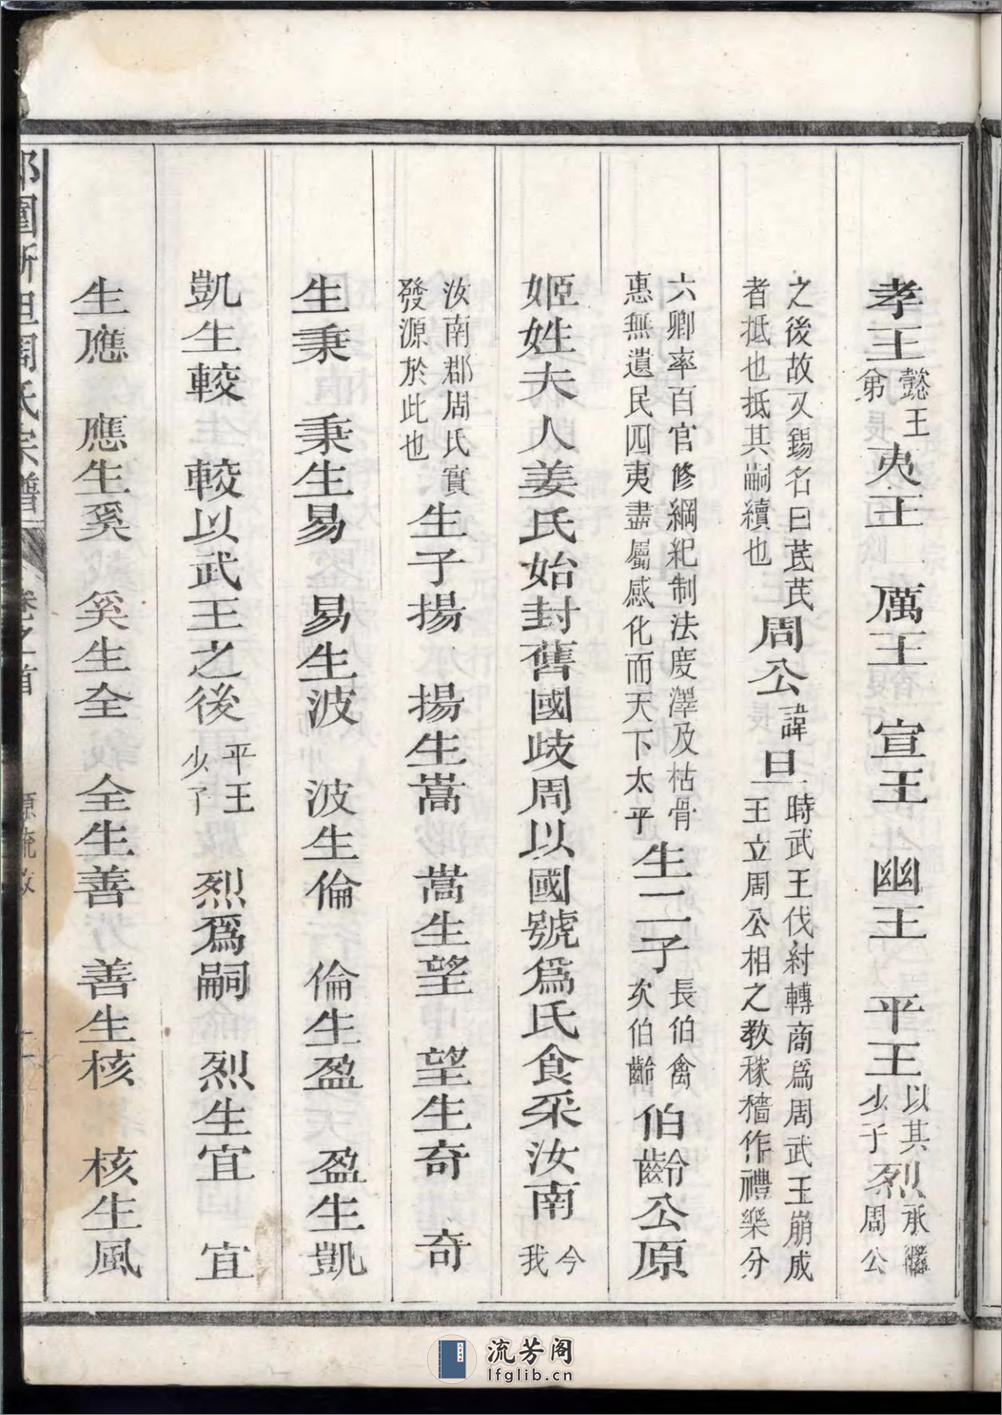 孝王懿王弟夷王 厲王 宣王 幽王 平王以其少子烈承繼周公
之後故又錫名曰茋茋者抵也抵其嗣續也周公諱旦時武王伐紂轉商為周武王崩成王立周公相之教稼穡作禮樂分
六卿率百官修綱紀制法度澤及枯骨惠無遺民四夷盡屬感化而天下太平生二子長伯禽次伯齡伯齡公原
姬姓夫人姜氏始封舊國歧周以國號爲氏食采汝南今我
汝南郡周氏實發源於此也生子揚 揚生嵩 嵩生望 望生奇 奇
生秉 秉生易 易生波 波生倫 倫生盈 盈生凱
凱生較 較以武王之後平王少子烈爲嗣 烈生宜 宜
生應 應生奚 奚生全 全生善 善生核 核生風
周氏宗譜 卷之首 源流
流芳阁
lfglib.cn